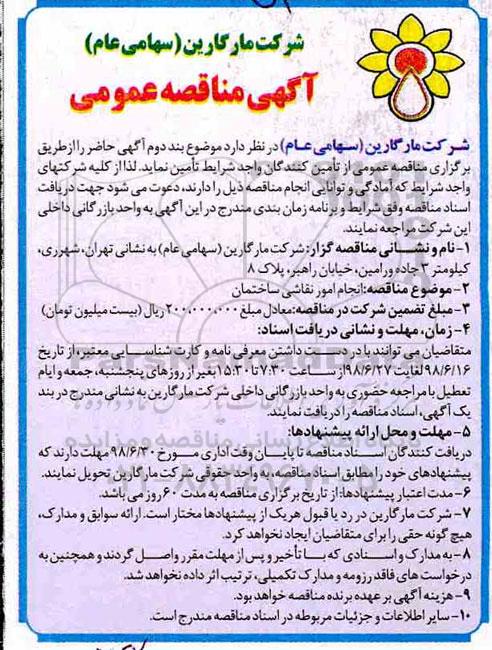 شرکت مارگارین (سهامی عام)
آگهی مناقصه عمومی
شرکت مارگارین (سهامی عام) در نظر دارد موضوع بند دوم آگهی حاضر را از طریق
برگزاری مناقصه عمومی از تأمین کنندگان واجد شرایط تأمین نماید. لذا از کلیه شرکتهای
واجد شرایط که آمادگی و توانایی انجام مناقصه ذیل را دارند، دعوت می شود جهت دریافت
اسناد مناقصه وفق شرایط و برنامه زمان بندی مندرج در این آگهی به واحد بازرگانی داخلی
این شرکت مراجعه نمایند.
۱- نام و نشانی مناقصه گزار: شرکت مارگارین (سهامی عام) به نشانی تهران، شهرری،
کیلومتر ۳ جاده ورامین، خیابان راهبر، پلاک ۸
۲- موضوع مناقصه: انجام امور نقاشی ساختمان
۳- مبلغ تضمین شرکت در مناقصه: معادل مبلغ ۲۰۰.۰۰۰.۰۰۰ ریال (بیست میلیون تومان)
۴- زمان، مهلت و نشانی دریافت اسناد:
متقاضیان می توانند با در دست داشتن معرفی نامه و کارت شناسایی معتبر، از تاریخ
۹۸/۶/۱۶ لغایت ۹۸/۶/۲۷ از ساعت ۷:۳۰ تا ۱۵:۳۰ بغیر از روزهای پنجشنبه، جمعه و ایام
تعطیل با مراجعه حضوری به واحد بازرگانی داخلی شرکت مارگارین به نشانی مندرج در بند
یک آگهی، اسناد مناقصه را دریافت نمایند.
۵- مهلت و محل ارائه پیشنهادها:
دریافت کنندگان اسناد مناقصه تا پایان وقت اداری مورخ ۹۸/۶/۳۰ مهلت دارند که
پیشنهادهای خود را مطابق اسناد مناقصه به واحد حقوقی شرکت مارگارین تحویل نمایند.
۶- مدت اعتبار پیشنهادها: از تاریخ برگزاری مناقصه به مدت ۶۰ روز می باشد.
۷- شرکت مارگارین در رد یا قبول هر یک از پیشنهادها مختار است. ارائه سوابق و مدارک،
هیچ گونه حقی را برای متقاضیان ایجاد نخواهد کرد.
۸- به مدارک و اسنادی که با تأخیر و پس از مهلت مقرر واصل گردند و همچنین به
درخواست های فاقد رزومه و مدارک تکمیلی، ترتیب اثر داده نخواهد شد.
۹- هزینه آگهی بر عهده برنده مناقصه خواهد بود.
۱۰- سایر اطلاعات و جزئیات مربوطه در اسناد مناقصه مندرج است.